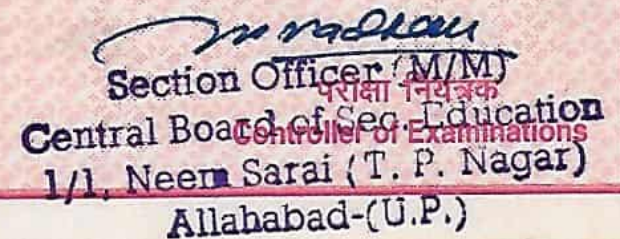 Section Officer (M/M)
परीक्षा नियंत्रक
Central Board of Sec. Education
Controller of Examinations
1/1, Neem Sarai (T. P. Nagar)
Allahabad-(U.P.)